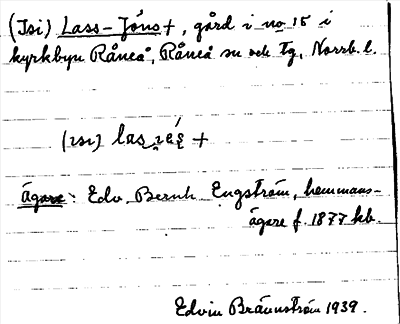 (Isi) Lass-Jóns +, gård i no 15 i
kyrkbyn Råneå, Råneå sn och tg, Norrb. l.
(ısı) las +
Ägare: Edv. Bernh. Engström, hemmans-
ägare f. 1877 kb.
Edvin Brännström 1939.